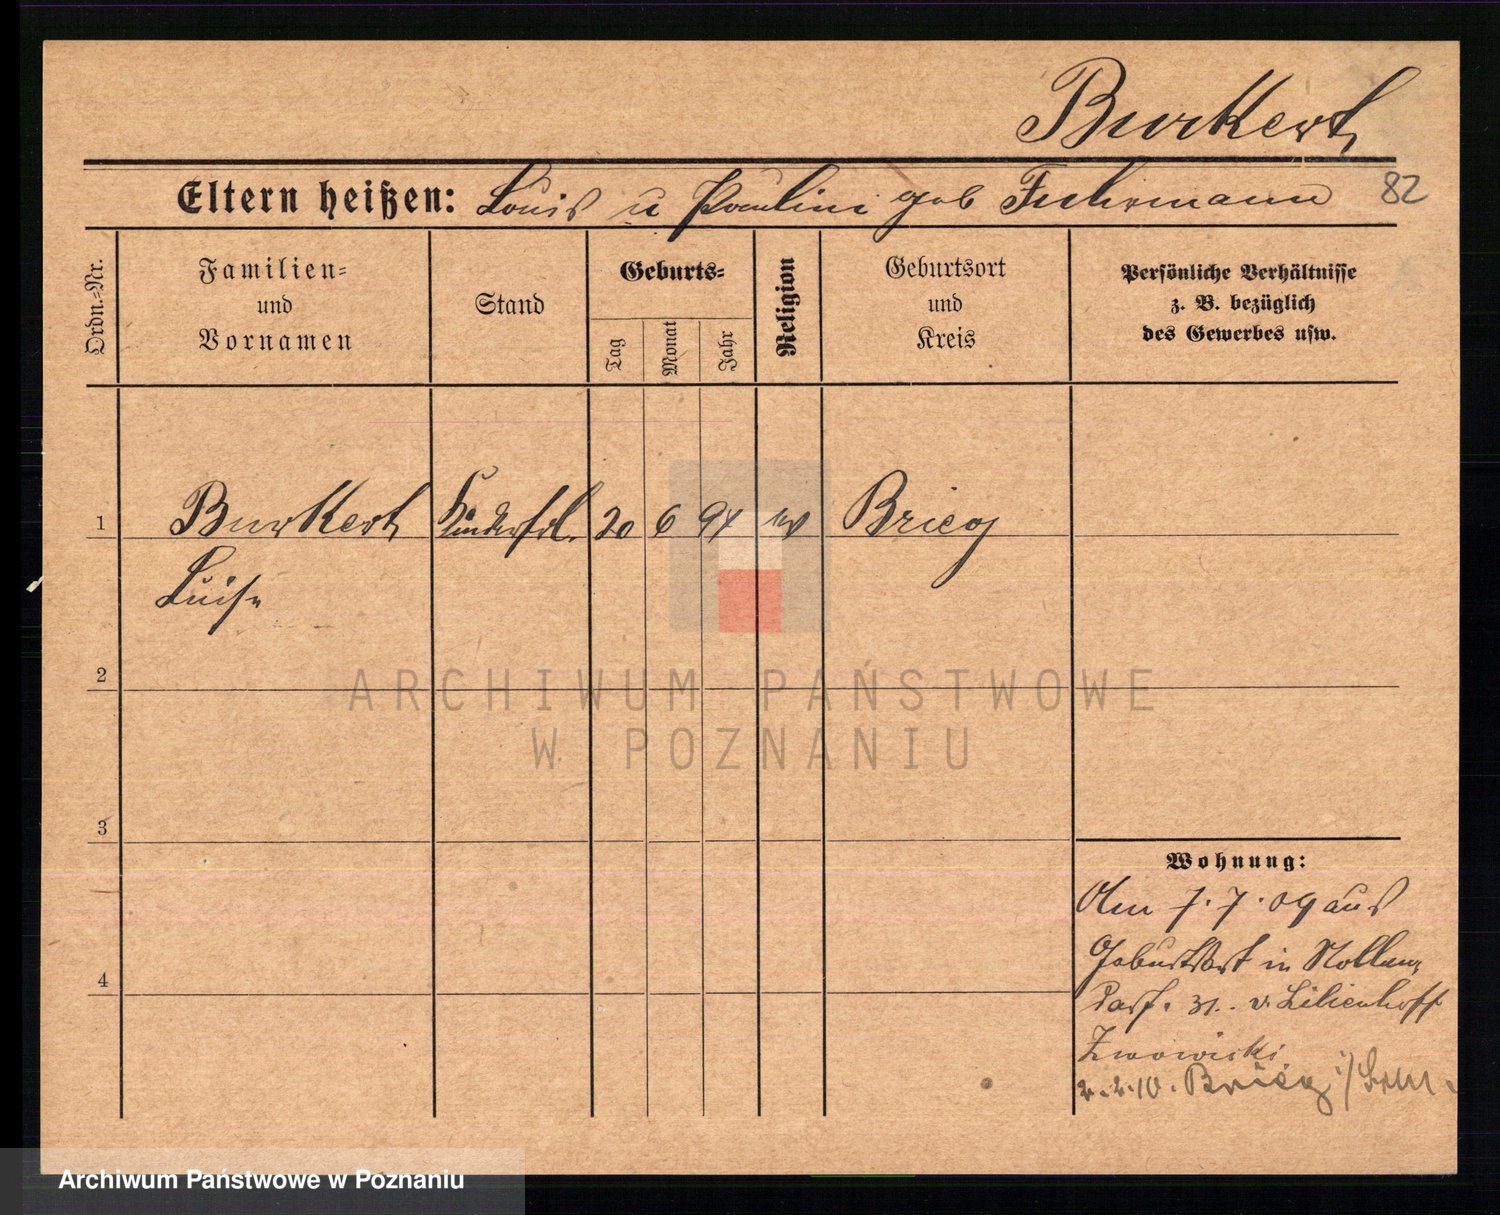 Burkert
Eltern heißen: Louis u Pauline geb Fuhrmann 82
Ordn.-Nr.
Familien-
und
Vornamen
Stand
Geburts-
Tag
Monat
Jahr
Religion
Geburtsort
und
Kreis
Persönliche Verhältnisse
z. B. bezüglich
des Gewerbes usw.
1 Burkert Kinderfrl. 20 6 94 Brieg
Luise
2
ARCHIWUM PAŃSTWOWE
W POZNANIU
3
Wohnung:
Am 7.7.09 aus
Geburtsort in Nollen-
dorf. 31. v. Lilienhoff
Zwowicki
4
2.2.10. Brieg
Archiwum Państwowe w Poznaniu